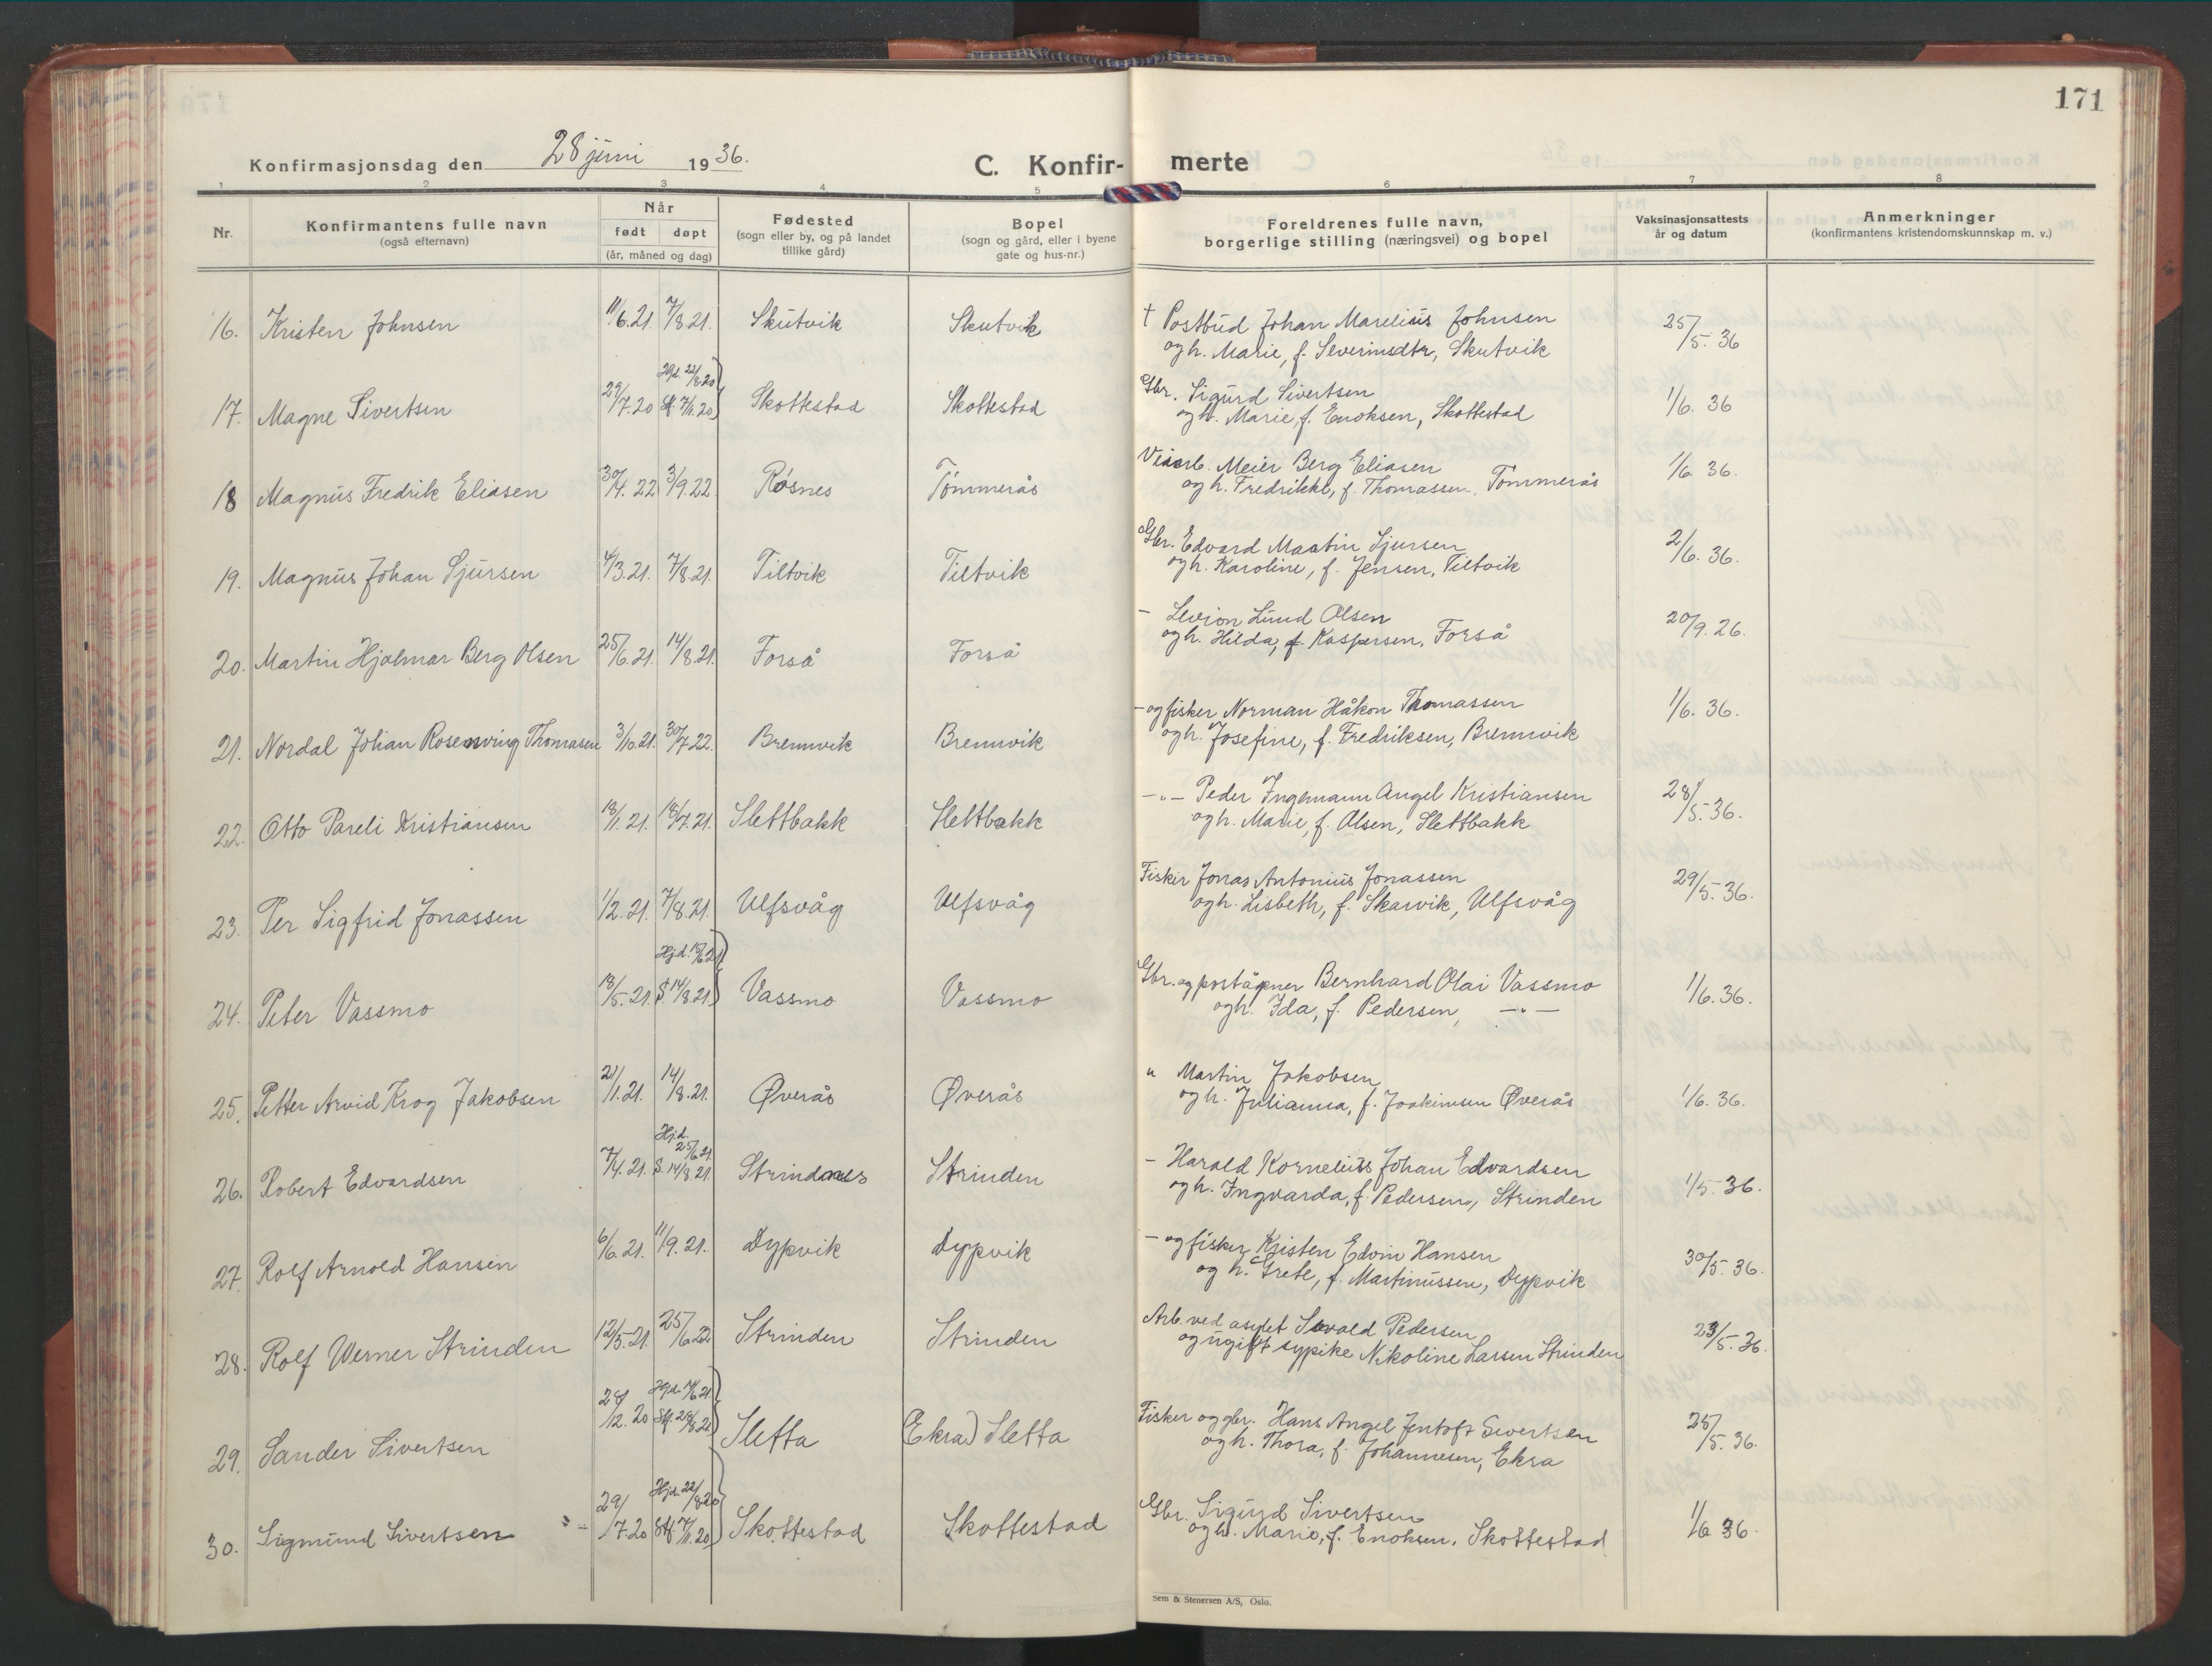 171
Konfirmasjonsdag den 28 juni 1936.
C. Konfir- merte
1 2 3 4 5 6 7 8
Nr. Konfirmantens fulle navn (også efternavn) Når født døpt (år, måned og dag) Fødested (sogn eller by, og på landet tillike gård) Bopel (sogn og gård, eller i byene gate og hus-nr.) Foreldrenes fulle navn, borgerlige stilling (næringsvei) og bopel Vaksinasjonsattests år og datum Anmerkninger (konfirmantens kristendomskunnskap m. v.)
16. Kristen Johnsen 11/6.21. 7/8.21. Skutvik Skutvik † Postbud Johan Marelius Johnsen 25/5.36
og h. Marie, f. Severinsdtr, Skutvik
17. Magne Sivertsen 29/7.20 Hjd. 22/8.20 Skf. 7/11.20 Skottestad Skottestad Gbr. Sigurd Sivertsen 1/6. 36
og h. Marie, f. Enoksen, Skottestad
18 Magnus Fredrik Eliasen 30/4.22 3/9.22. Røsnes Tømmerås Veiarb. Meier Berg Eliasen 1/6. 36.
og h. Fredrikke, f. Thomassen, Tømmerås
19. Magnus Johan Sjursen 4/3.21. 7/8.21. Tiltvik Tiltvik Gbr. Edvard Martin Sjursen 2/6. 36.
og h. Karoline, f. Jensen, Tiltvik
20. Martin Hjalmar Berg Olsen 25/6.21. 14/8.21. Forså Forså – Levion Lund Olsen 20/9.26.
og h. Hilda, f. Kaspersen, Forså
21. Nordal Johan Rosenving Thomasen 3/10.21. 30/7.22. Bremvik Bremvik – og fisker Norman Håkon Thomassen 1/6. 36.
og h. Josefine, f. Fredriksen, Bremvik
22. Otto Pareli Kristiansen 18/1.21. 18/7.21. Slettbakk Slettbakk –„– Peder Ingemann Angel Kristiansen 28/5.36.
og h. Marie, f. Olsen, Slettbakk
23. Per Sigfrid Jonassen 1/2.21. 7/8.21. Ulfsvåg Ulfsvåg Fisker Jonas Antonius Jonassen 29/5.36.
og h. Lisbeth, f. Skarvik, Ulfsvåg
24. Peter Vassmo 18/5.21. Hjd. S. 14/8.21. Vassmo Vassmo Gbr. og poståpner Bernhard Olai Vassmo 1/6.36.
og h. Ida, f. Pedersen, –„–
25. Petter Arvid Krog Jakobsen 21/1.21. 14/8.21. Øverås Øverås „ Martin Jakobsen 1/6. 36.
og h. Julianna, f. Joakimsen Øverås
26. Robert Edvardsen 7/4.21. Hjd. 25/6.21. S. 14/8.21. Strinden – Harald Kornelius Johan Edvardsen 1/5.36.
og h. Ingvarda, f. Pedersen, Strinden
27. Rolf Arnold Hansen 6/6.21. 11/9.21. Dypvik Dypvik – og fisker Kristen Edvin Hansen 30/5.36.
og h. Grete, f. Martinussen, Dypvik
28. Rolf Werner Strinden 12/5.21. 25/6.22 Strinden Strinden Arb. ved asylet Sevald Pedersen 23/5.36.
og ugift sypike Nikoline Larsen Strinden
29. Sander Sivertsen 28/12.20 Hjd. Skf. 28/8.21 Sletta (Ekra) Sletta Fisker og gbr. Hans Angel Jentoft Sivertsen 25/5.36.
og h. Thora, f. Johannesen, Ekra
30. Sigmund Sivertsen 29/7.20 Hjd. 22/8.20 Skf. 7/11.20 Skottestad Skottestad Gbr. Sigurd Sivertsen 1/6 36.
og h. Marie, f. Enoksen, Skottestad
Sem & Stenersen A/S, Oslo.